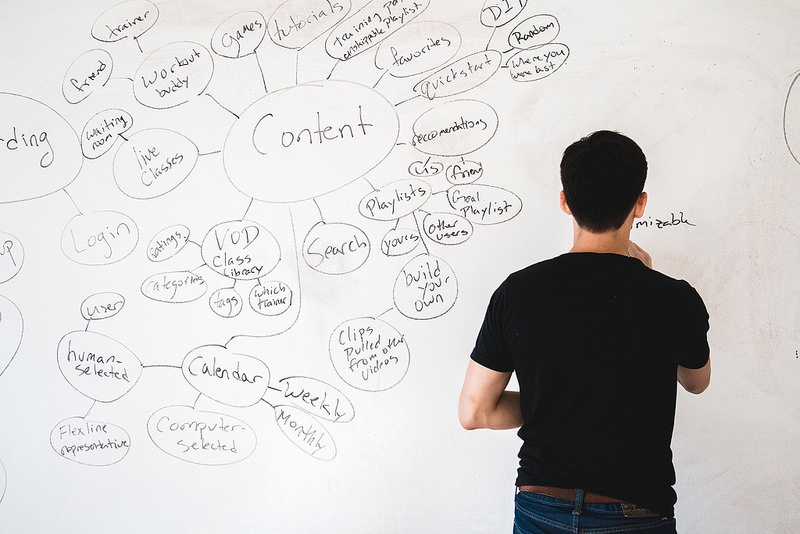 trainer
friend
workout
buddy
Games
tutorials
favorites
quickstart
DIY
Random
where you
were last
ding
waiting
room
live
Classes
Content
reccomendations
Login
up
ratings
categories
VOD
Class
library
tags
which
trainer
Search
Playlists
friend
Goal
Playlist
yours
other
users
build
your
own
Clips
Pulled
from other
videos
mizable
user
human-
selected
Flexline
representative
Calendar
Computer-
selected
Weekly
Monthly